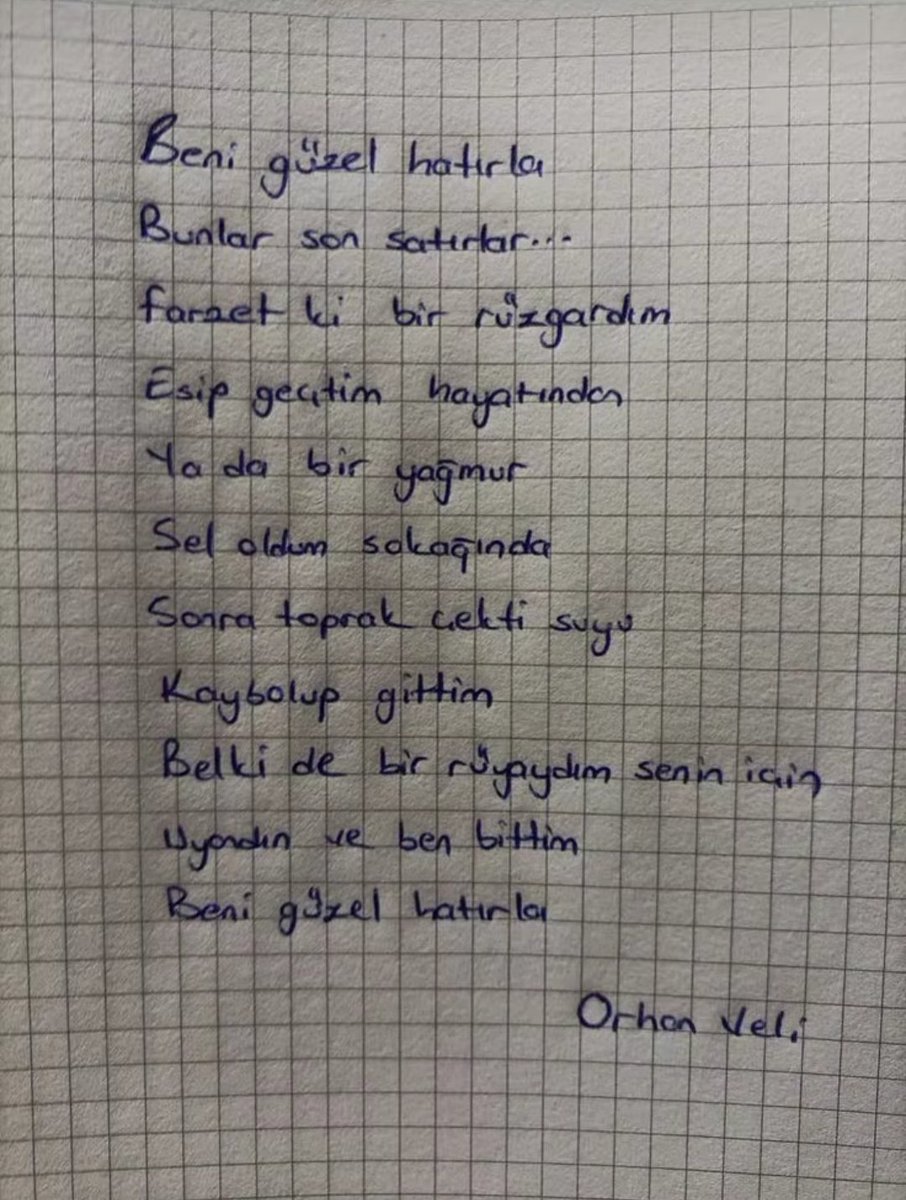 Beni güzel hatırla
Bunlar son satırlar...
farzet ki bir rüzgardım
Esip geçtim hayatından
Ya da bir yağmur
Sel oldum sokağında
Sonra toprak çekti suyu
Kaybolup gittim
Belki de bir rüyaydım senin için
Uyandın ve ben bittim
Beni güzel hatırla
Orhan Veli